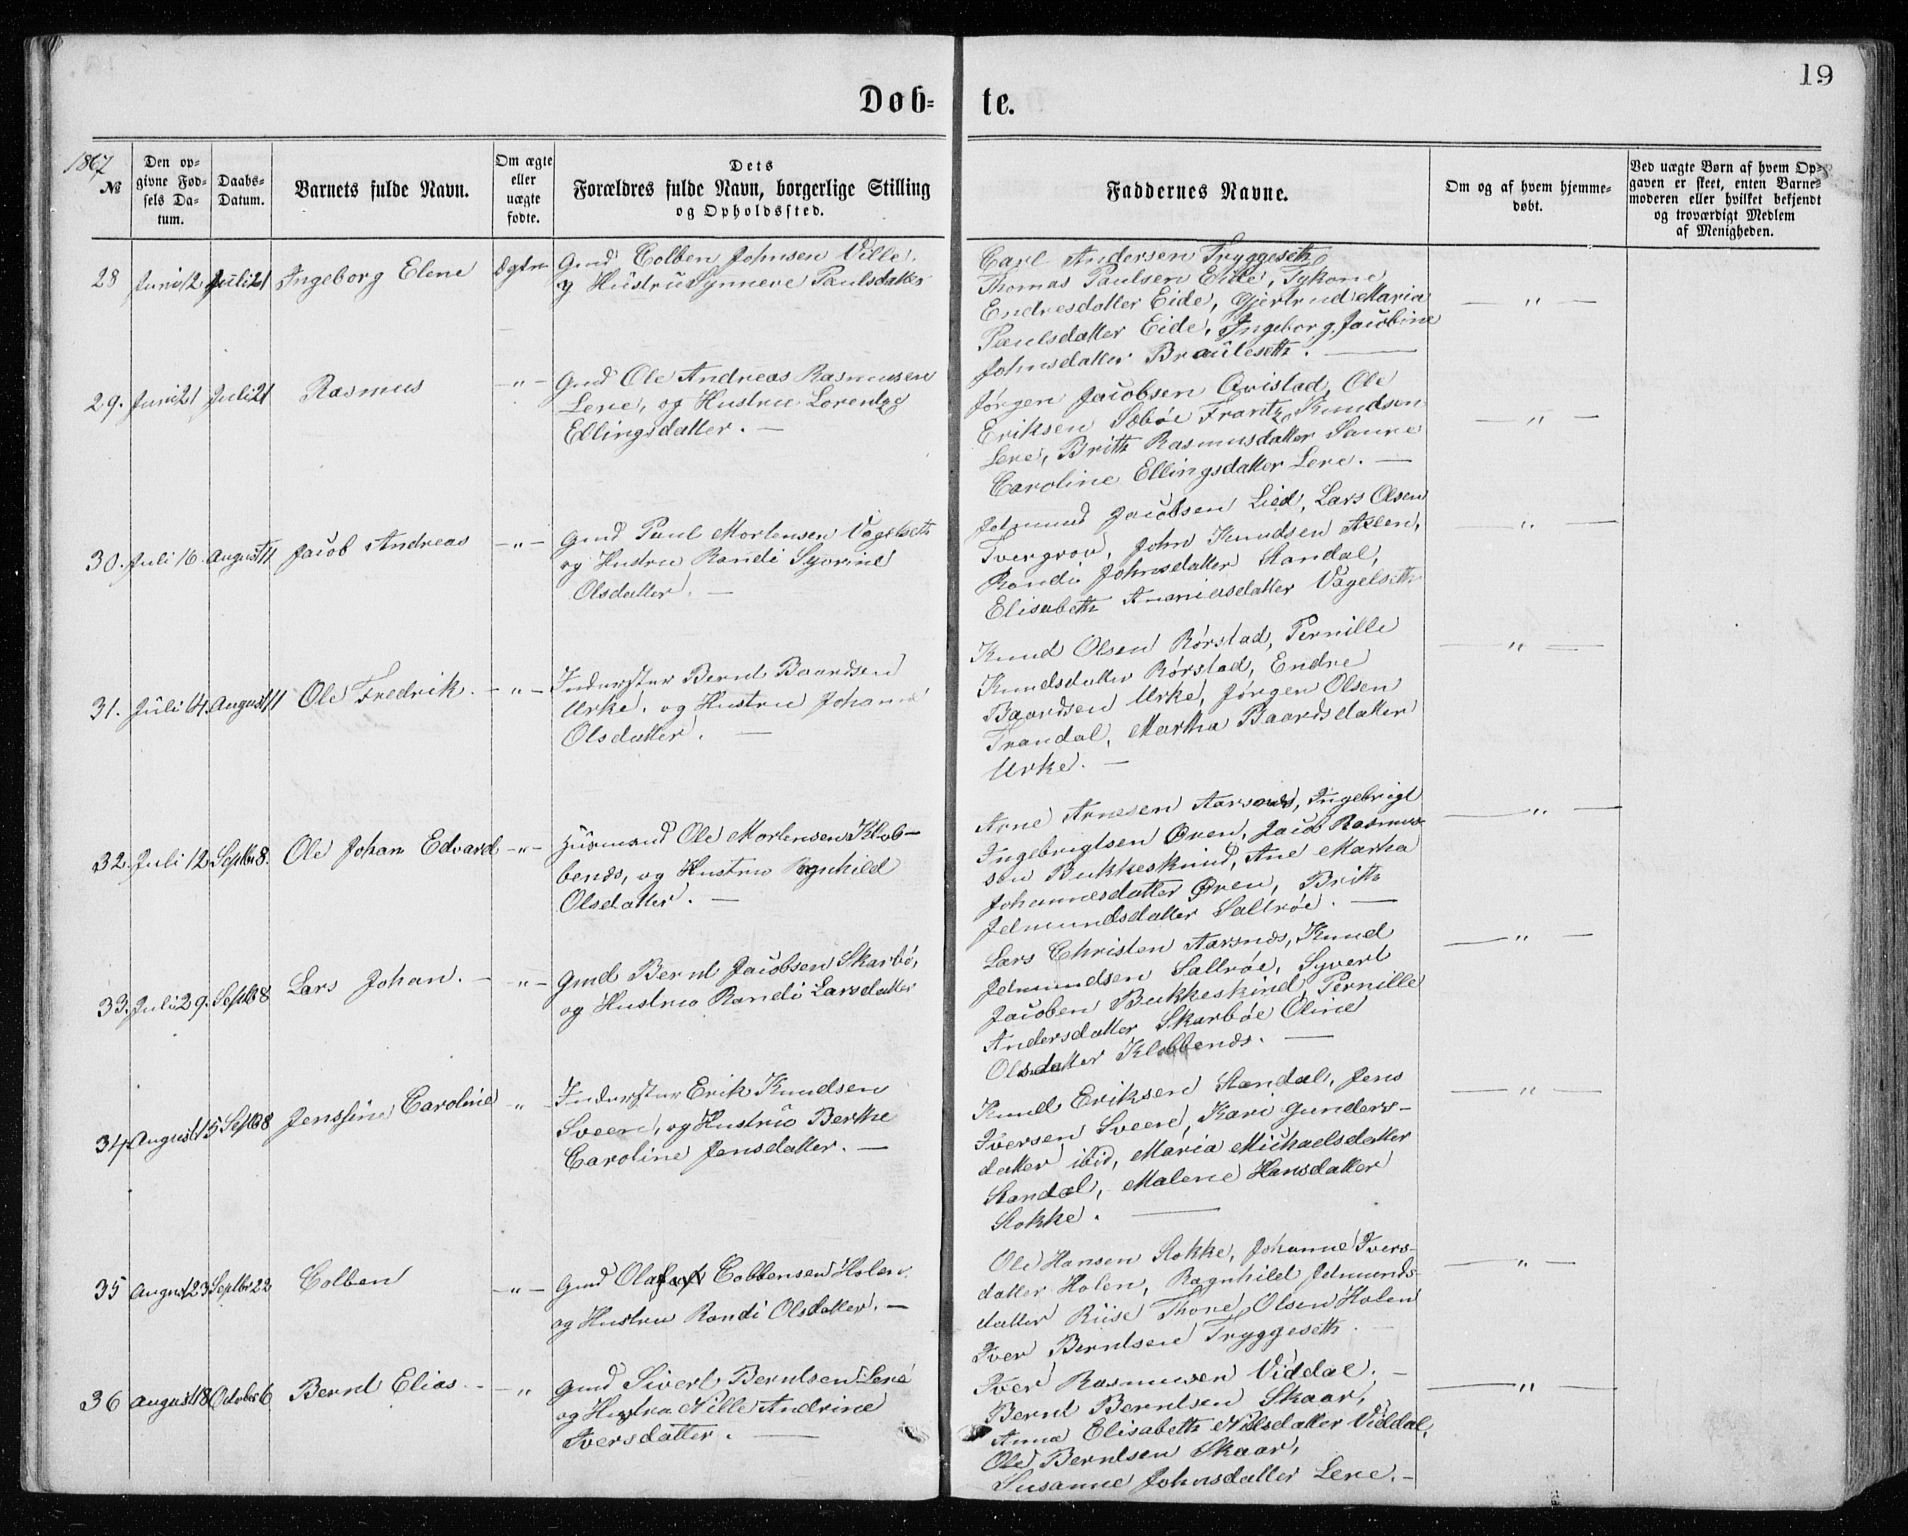 19
Døb- te.
1867
№
Den op-
givne Fød-
sels Da-
tum.
Daabs-
Datum.
Barnets fulde Navn.
Om ægte
eller
uægte
fødte.
Dets
Forældres fulde Navn, borgerlige Stilling
og Opholdssted.
Faddernes Navne.
Om og af hvem hjemme-
døbt.
Ved uægte Børn af hvem Op-
gaven er skeet, enten Barne-
moderen eller hvilket bekjendt
og troværdigt Medlem
af Menigheden.
28 Juni 12 Juli 21 Ingeborg Elene Ægten
Gmd Colben Johnsen Ville
og Hustru Synneve Paulsdatter
Carl Andersen Tryggeseth
Thomas Paulsen Eide, Tykone
Endresdatter Eide, Gjertrud Maria
Paulsdatter Eide, Ingeborg Jacobine
Johnsdatter Braútesetth. —
— " —
29. Juni 21 Juli 21 Rasmus — " —
Gmd Ole Andreas Rasmussen
Lere, og Hustru Lorentze
Ellingsdatter. —
Jørgen Jacobsen Qvistad, Ole
Eriksen Sæbøe Frantz Knudsen
Lere, Britth Rasmusdatter Saure
Caroline Ellingsdatter Lere. —
— " —
30. Juli 16. August 11 Jacob Andreas — " —
Gmd Paul Mortensen Vagelseth
og Hustru Randi Syvrine
Olsdatter. —
Jetmund Jacobsen Lied, Lars Olsen
Tvergrov, John Knudsen Aklen,
Randi Johnsdatter Standal,
Elisabeth Ananiasdatter Vagelseth
— " —
31. Júli 14. August 11 Ole Fredrik. — " —
Inderster Bernt Baardsen
Urke, og Hustru Johanne
Olsdatter. —
Knud Olsen Rørstad, Pernille
Knudsdatter Rørstad, Endre
Baardsen Urke, Jørgen Olsen
Trandal, Martha Baardsdatter
Urke. —
— " —
32. Juli 12. Septbr 8. Ole Johan Edvard — " —
Húsmand Ole Mortensen Klob-
benæs, og Hustru Ragnhild
Olsdatter. —
Arne Arnesen Aarsnæs, Ingebrigt
Ingebrigtsen Øven, Jacob Rasmus-
sen Bukkeskind, Ane Martha
Johannesdatter Øven, Britth
Jetmundsdatter Saltrøe. —
— " —
33. Juli 29. Septbr 8 Lars Johan. — — " —
Gmd Bernt Jacobsen Skarbø,
og Hustru Randi Larsdatter
Lars Christen Aarsnæs, Knud
Jetmundsen Saltrøe, Syvert
Jacobsen Bukkeskind, Pernille
Andersdatter Skarbøe Oline
Olsdatter Klobbenæs. —
— " —
34. August 15 Septbr 8 Jenssine Caroline "
Inderster Erik Knudsen
Sveen, og Hustru Berthe
Caroline Jensdatter. —
Knud Eriksen Standal, Jens
Iversen Sveen, Kari Gunders-
datter ibid, Maria Michaelsdatter
Standal, Malene Hansdatter
Stokke. —
— " —
35 August 23 Septbr 22 Colben — " —
Gmd Ola Colbensen Holen
og Hustru Randi Olsdatter. —
Ole Hansen Stokke, Johanne Ivers-
datter Holen, Ragnhild Jetmunds-
datter Riise Thone Olsen Holen
Iver Berntsen Tryggeseth. —
— " —
36 August 18 October 6 Bernt Elias. — "
Gmd Sivert Berntsen Lere
og Hustru Nille Andrine
Iversdatter. —
Iver Rasmussen Viddal. —
Bernt Berntsen Skaar,
Anna Elisabeth Nilsdatter Viddal,
Ole Berntsen Skaar,
Susanne Johnsdatter Lere. —
— " —